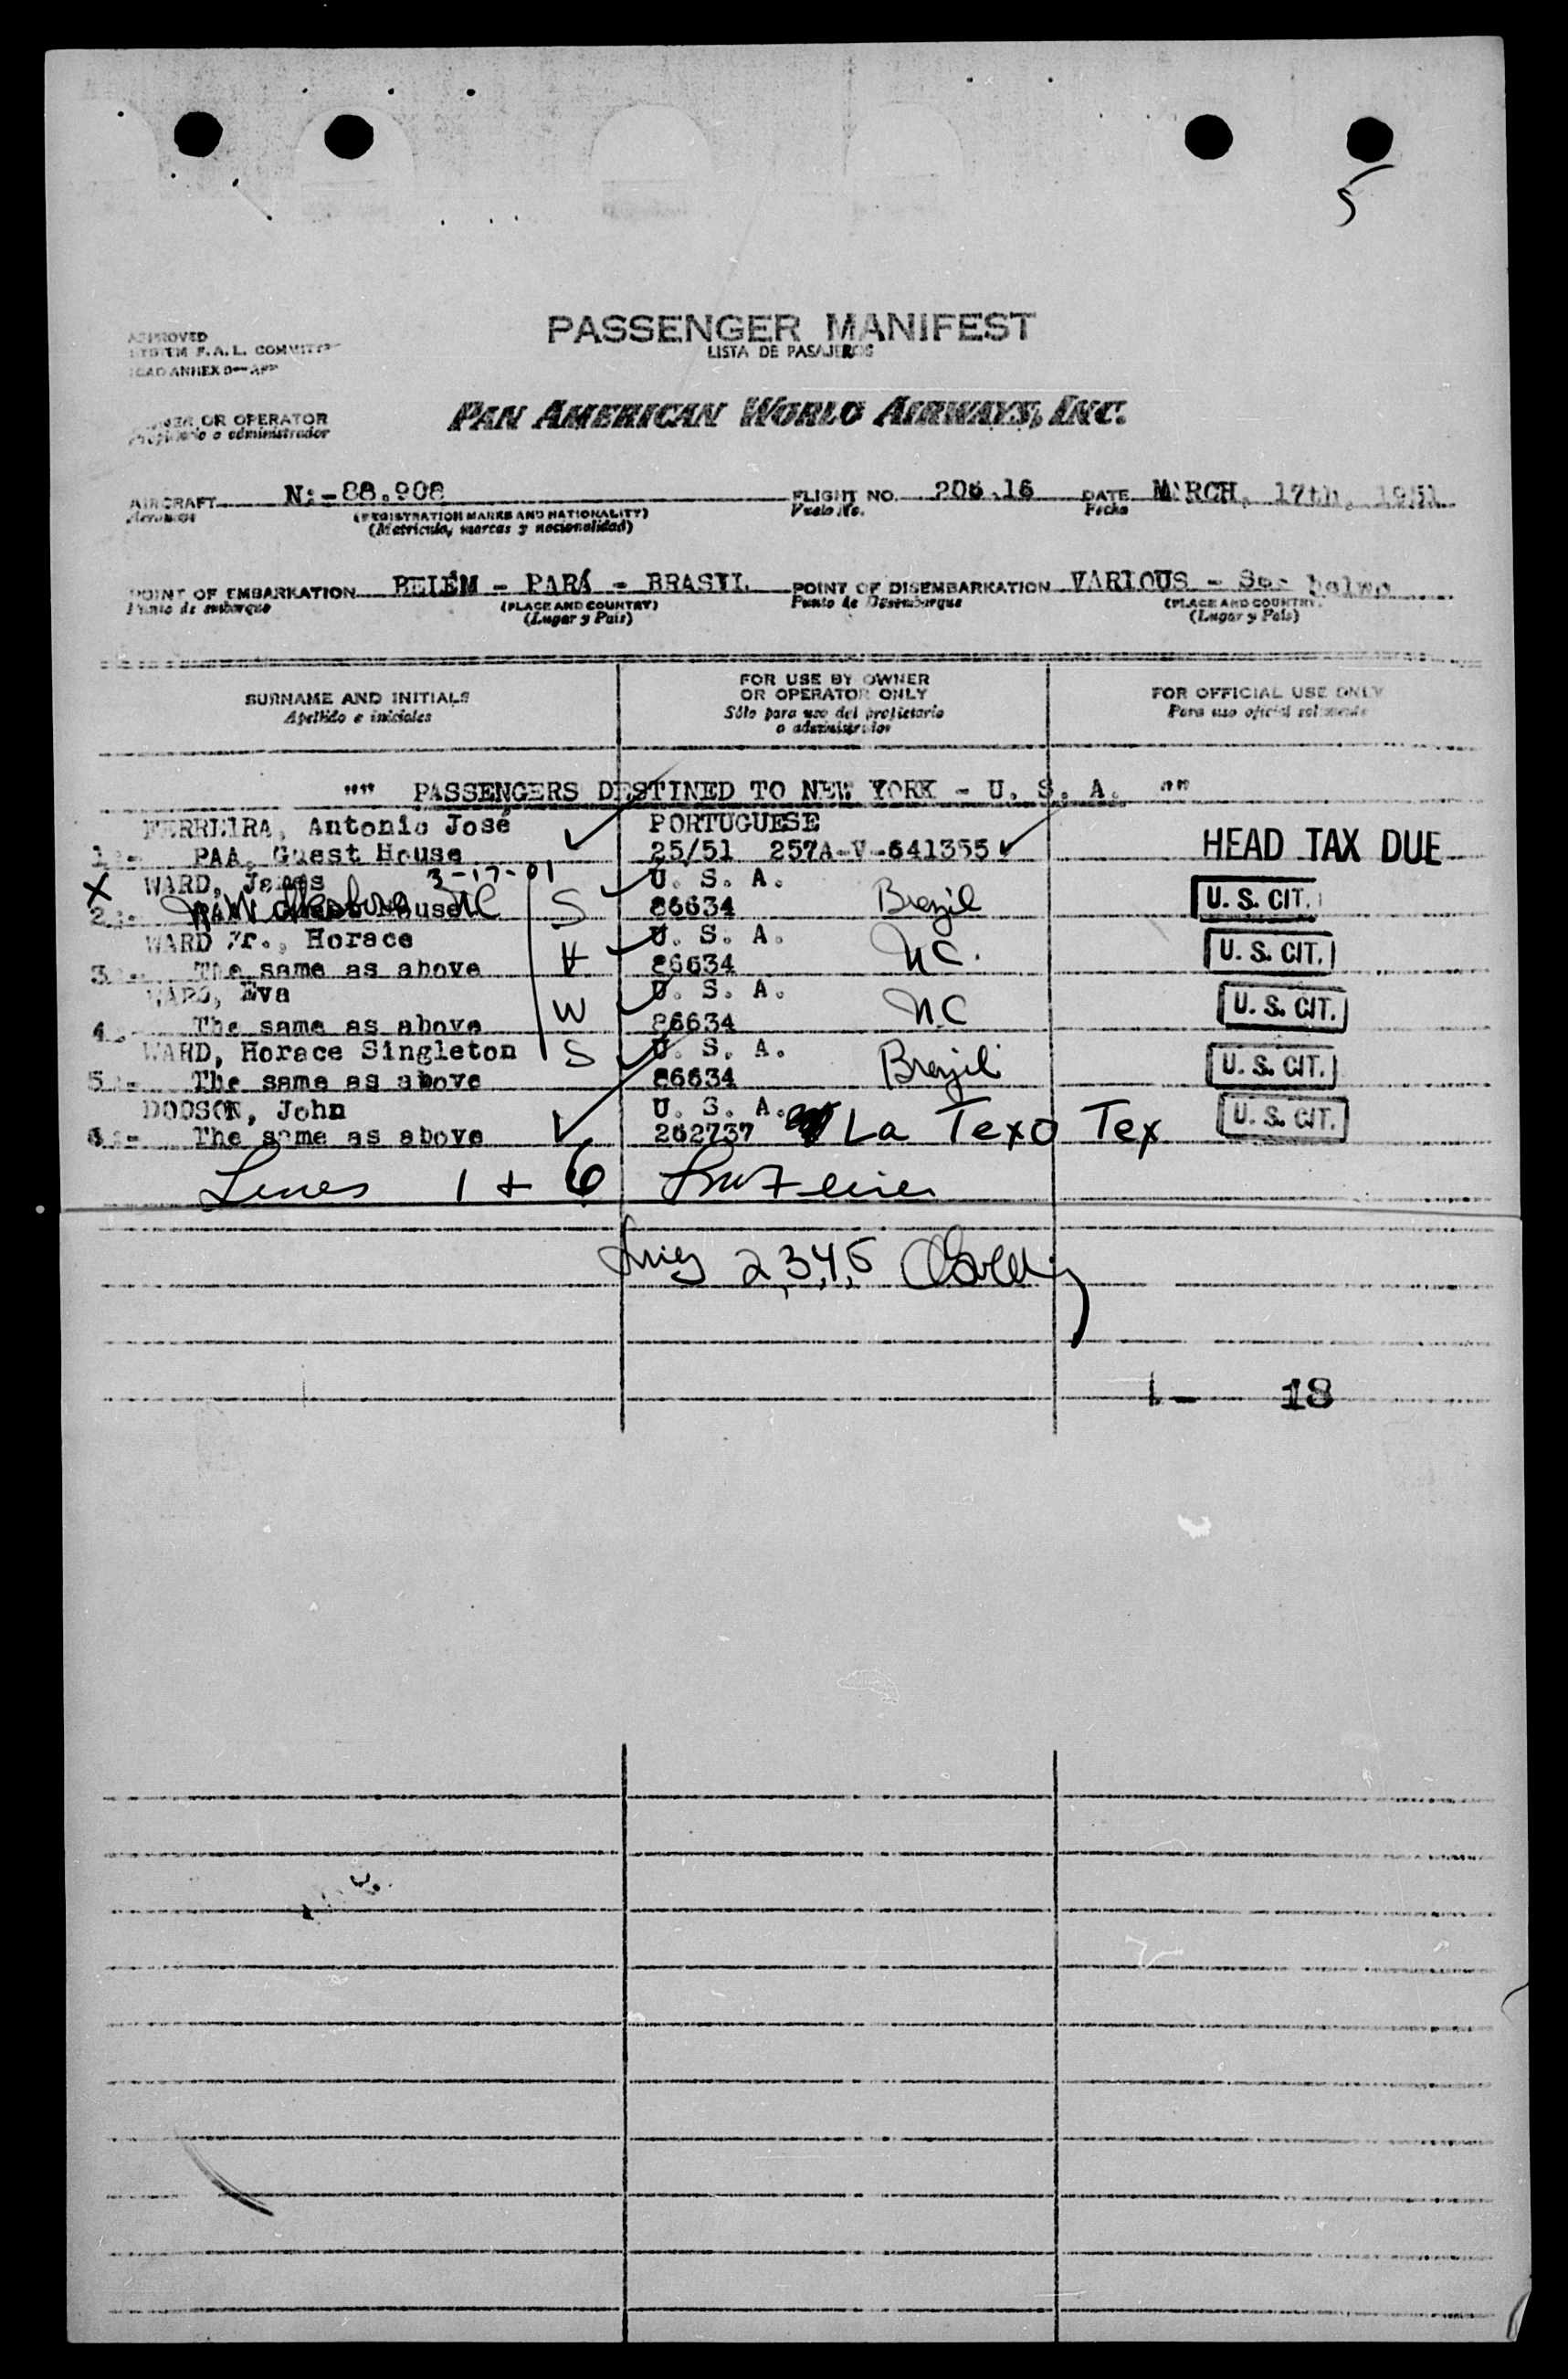 5
PASSENGER MANIFEST
LISTA DE PASAJEROS
APPROVED
SYSTEM F.A.L. COMMITTEE
ICAO ANNEX 9-APP
PAN AMERICAN WORLD AIRWAYS, INC.
OWNER OR OPERATOR
Propietario o administrador
AIRCRAFT N:-88.908 FLIGHT NO. 206.16 DATE MARCH, 17th, 1951
Aeronave (REGISTRATION MARKS AND NATIONALITY) Vuelo No. Fecha
(Matrícula, marcas y nacionalidad)
POINT OF EMBARKATION BELÉM - PARÁ - BRASIL POINT OF DISEMBARKATION VARIOUS - See below
Punto de embarque (PLACE AND COUNTRY) Punto de Desembarque (PLACE AND COUNTRY)
(Lugar y País) (Lugar y País)
SURNAME AND INITIALS FOR USE BY OWNER OR OPERATOR ONLY FOR OFFICIAL USE ONLY
Apellido e iniciales Sólo para uso del propietario o administrador Para uso oficial solamente
"" PASSENGERS DESTINED TO NEW YORK - U. S. A. ""
FERREIRA, Antonio José PORTUGUESE
1:- PAA, Guest House 25/51 257A-V-641355 HEAD TAX DUE
X WARD, James 3-17-01 U. S. A.
2:- PAA, Guest House NC S 86634 Brazil U. S. CIT.
WARD Jr., Horace U. S. A.
3:- The same as above H 86634 NC. U. S. CIT.
WARD, Eva U. S. A.
4:- The same as above W 86634 NC U. S. CIT.
WARD, Horace Singleton U. S. A.
5:- The same as above S 86634 Brazil U. S. CIT.
DODSON, John U. S. A.
6:- The same as above 262737 La Texo Tex U. S. CIT.
Lines 1 + 6
Lines 2,3,4,5
1- 18